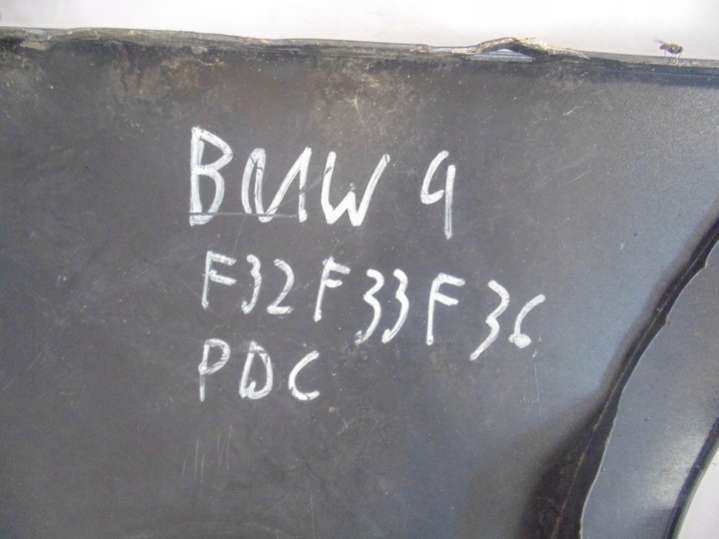 BMW 4
F32 F33 F36
PDC